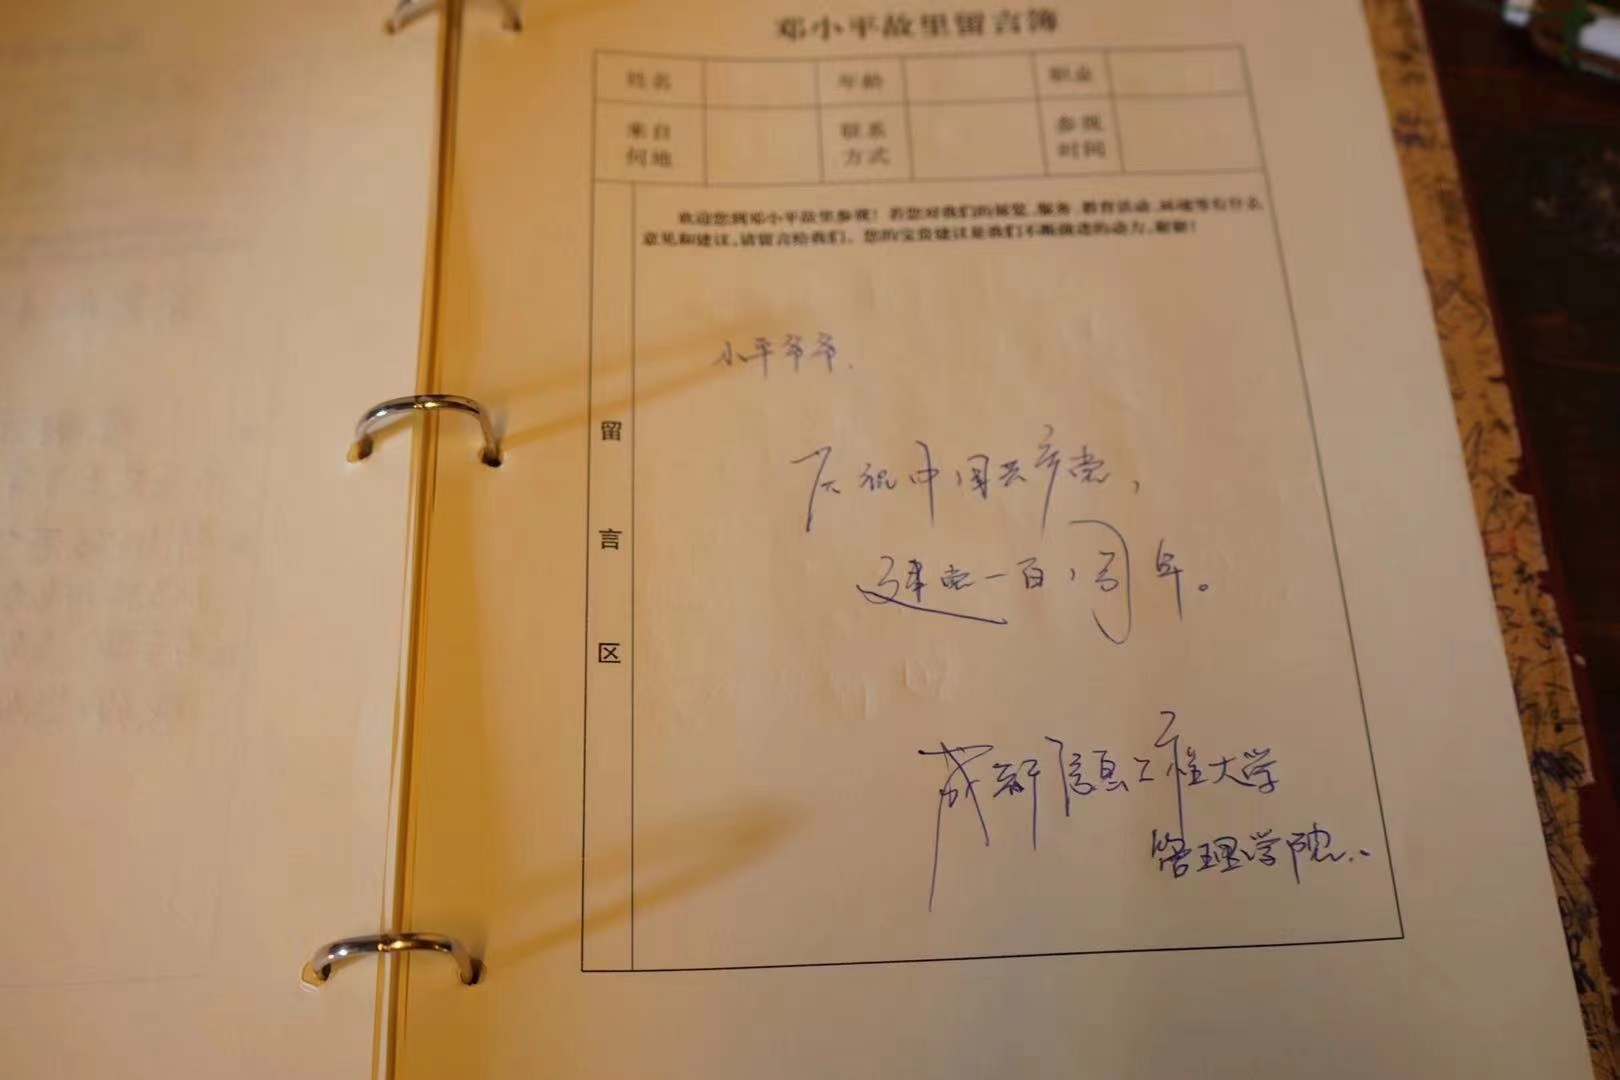 邓小平故里留言簿
姓名 年龄 职业
来自何地 联系方式 参观时间
欢迎您到邓小平故里参观！若您对我们的展览、服务、教育活动、环境等有什么
意见和建议,请留言给我们。您的宝贵建议是我们不断前进的动力,谢谢！
留言区
小平爷爷.
庆祝中国共产党,
建党一百周年。
成都信息工程大学
管理学院..